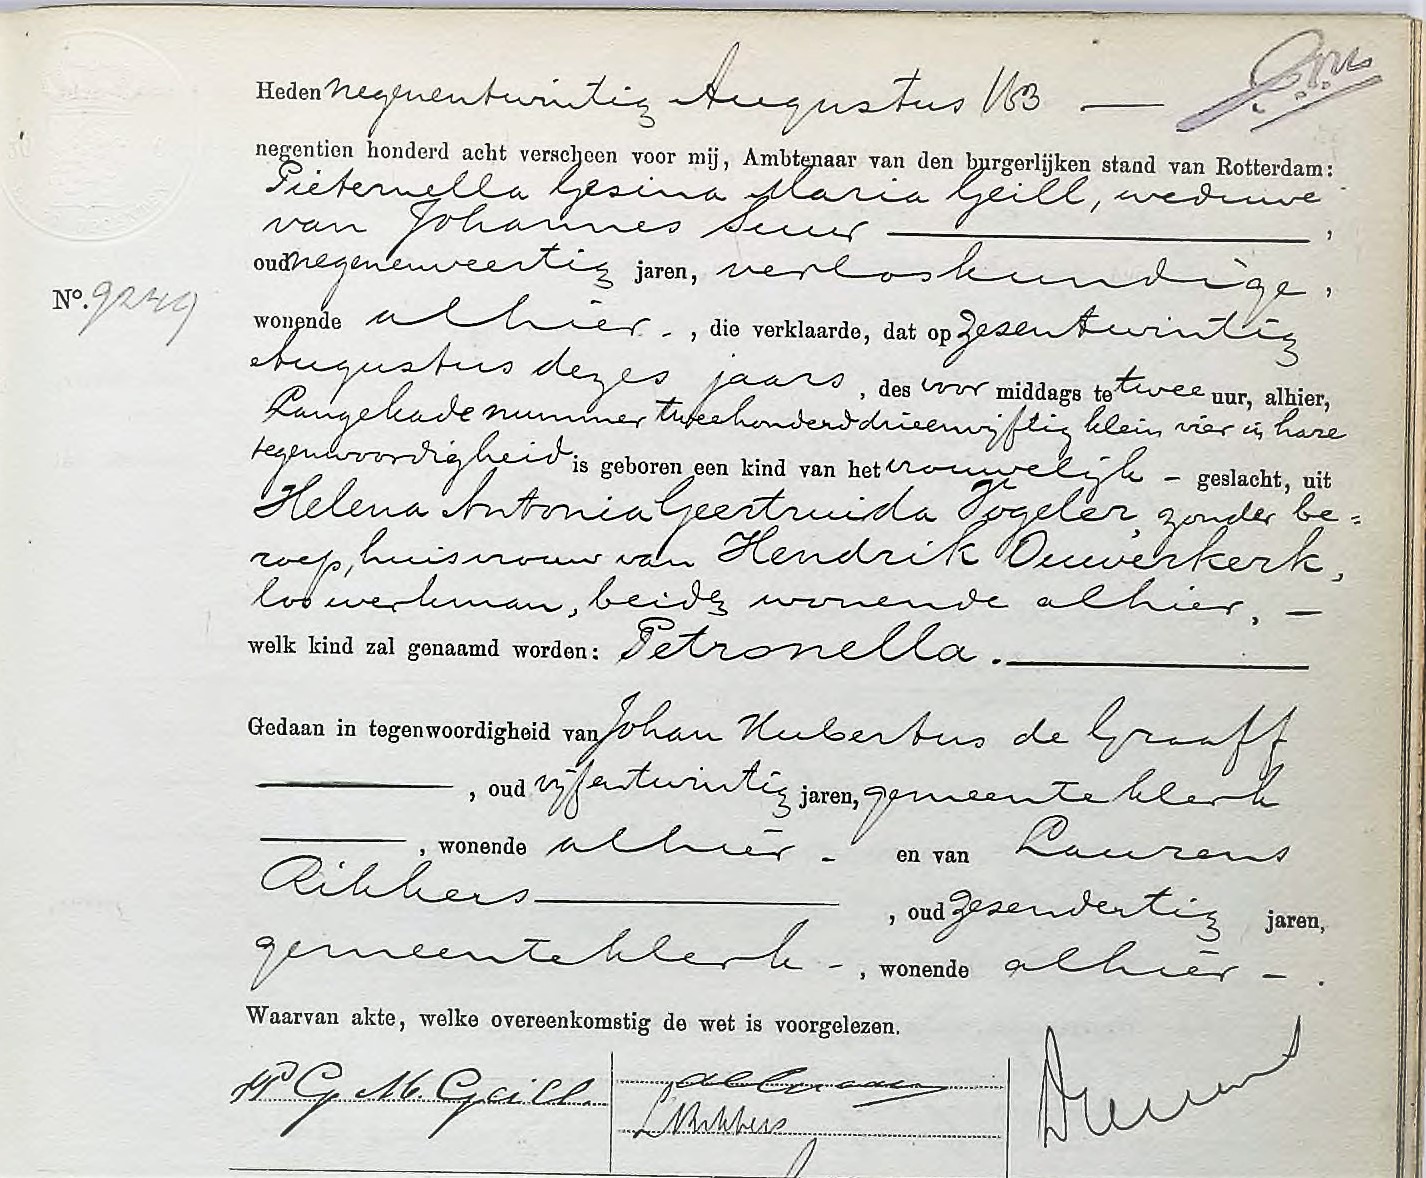 Heden negenentwintig Augustus 1/63 —
negentien honderd acht verscheen voor mij, Ambtenaar van den burgerlijken stand van Rotterdam:
Pieternella Gesina Maria Geill, weduwe
van Johannes Suur ,
oud negenenveertig jaren, verloskundige,
No. 9249
wonende alhier - , die verklaarde, dat op zesentwintig
Augustus dezes jaars , des voor middags te twee uur, alhier,
Langekade nummer tweehonderddrieenvijftig klein vier in hare
tegenwoordigheid is geboren een kind van het vrouwelijk - geslacht, uit
Helena Antonia Geertruida Vogeler, zonder be=
roep, huisvrouw van Hendrik Ouwerkerk,
los werkman, beide wonende alhier, —
welk kind zal genaamd worden: Petronella.
Gedaan in tegenwoordigheid van Johan Hubertus de Graaff
, oud vijfentwintig jaren, gemeenteklerk
, wonende alhier - en van Laurens
Rikkers , oud zesendertig jaren,
gemeenteklerk - , wonende alhier - .
Waarvan akte, welke overeenkomstig de wet is voorgelezen.
P G M Geill.
L Rikkers